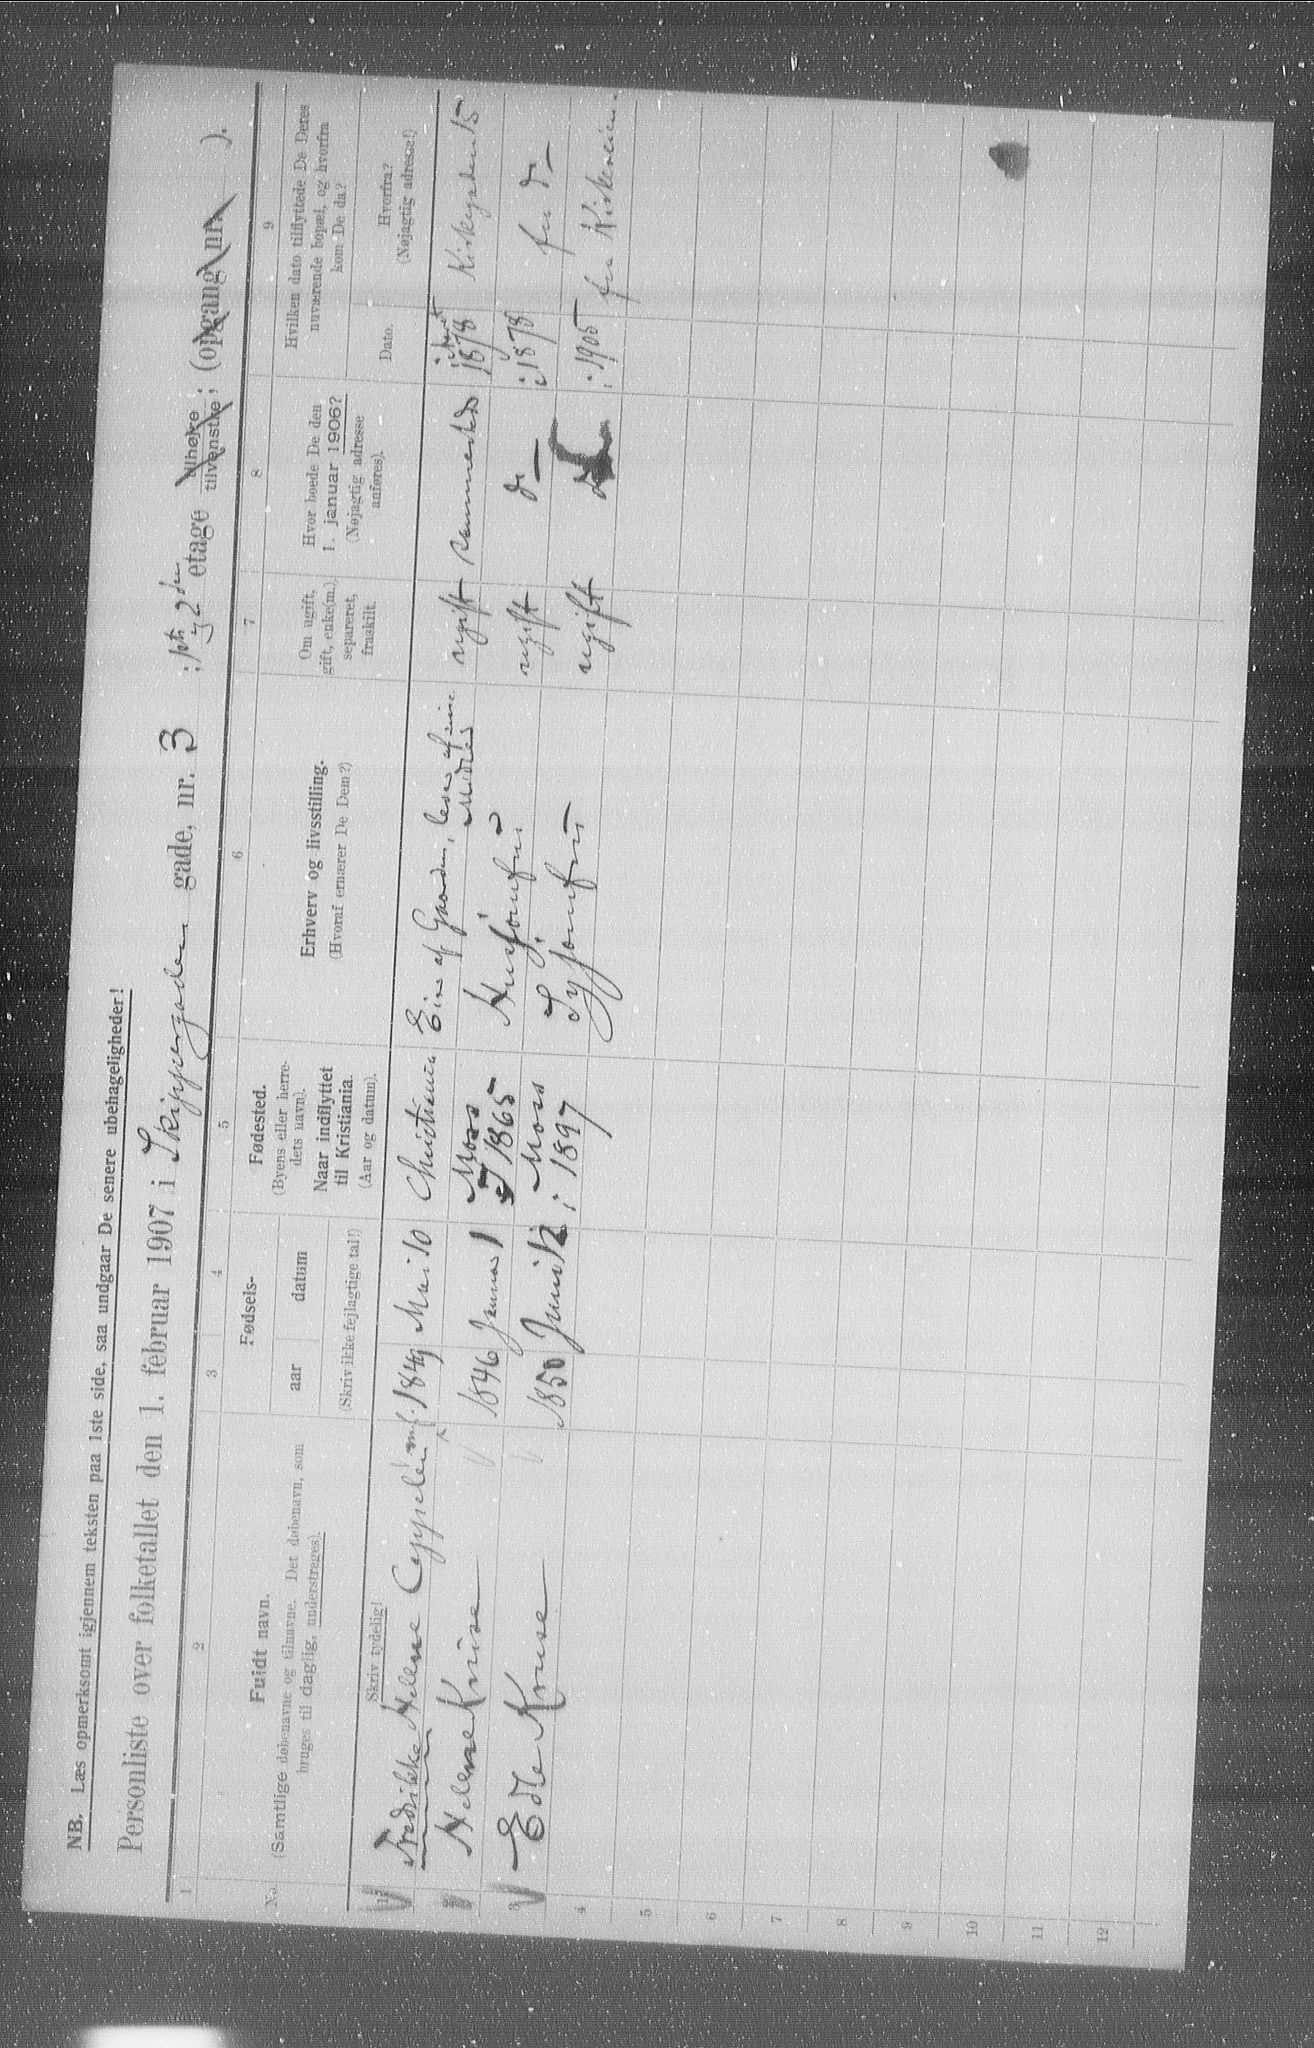 NB. Læs opmerksomt igjennem teksten paa 1ste side, saa undgaar De senere ubehageligheder!
Personliste over folketallet den 1. februar 1907 i Skippergaden gade, nr. 3 ; 2den etage tilhøjre tilvenstre; (opgang nr. ).
1 2 3 4 5 6 7 8 9
No.
Fuldt navn.
(Samtlige døbenavne og tilnavne. Det døbenavn, som
bruges til daglig, understreges).
Skriv tydelig!
Fødsels-
aar datum
(Skriv ikke fejlagtige tal!)
Fødested.
(Byens eller herre-
dets navn).
Naar indflyttet
til Kristiania.
(Aar og datum).
Erhverv og livsstilling.
(Hvoraf ernærer De Dem?)
Om ugift,
gift, enke(m.),
separeret,
fraskilt.
Hvor boede De den
1. januar 1906?
(Nøjagtig adresse
anføres).
Hvilken dato tilflyttede De Deres
nuværende bopæl, og hvorfra
kom De da?
Dato.
Hvorfra?
(Nøjagtig adresse!)
1 Fredrikke Helene Cappelen 1849 Mai 10 Christiania Eier af Gaarden, lever af sine Midler ugift sammesteds 1878 Kirkegaden 15
2 Helene Kruse 1846 Januar 1 Moss 1865 Husjomfru ugift do i 1878 fra do
3 Edle Kruse 1850 Juni 12 Moss i 1897 Syjomfru ugift do i 1905 fra Kirkeveien.
4
5
6
7
8
9
10
11
12